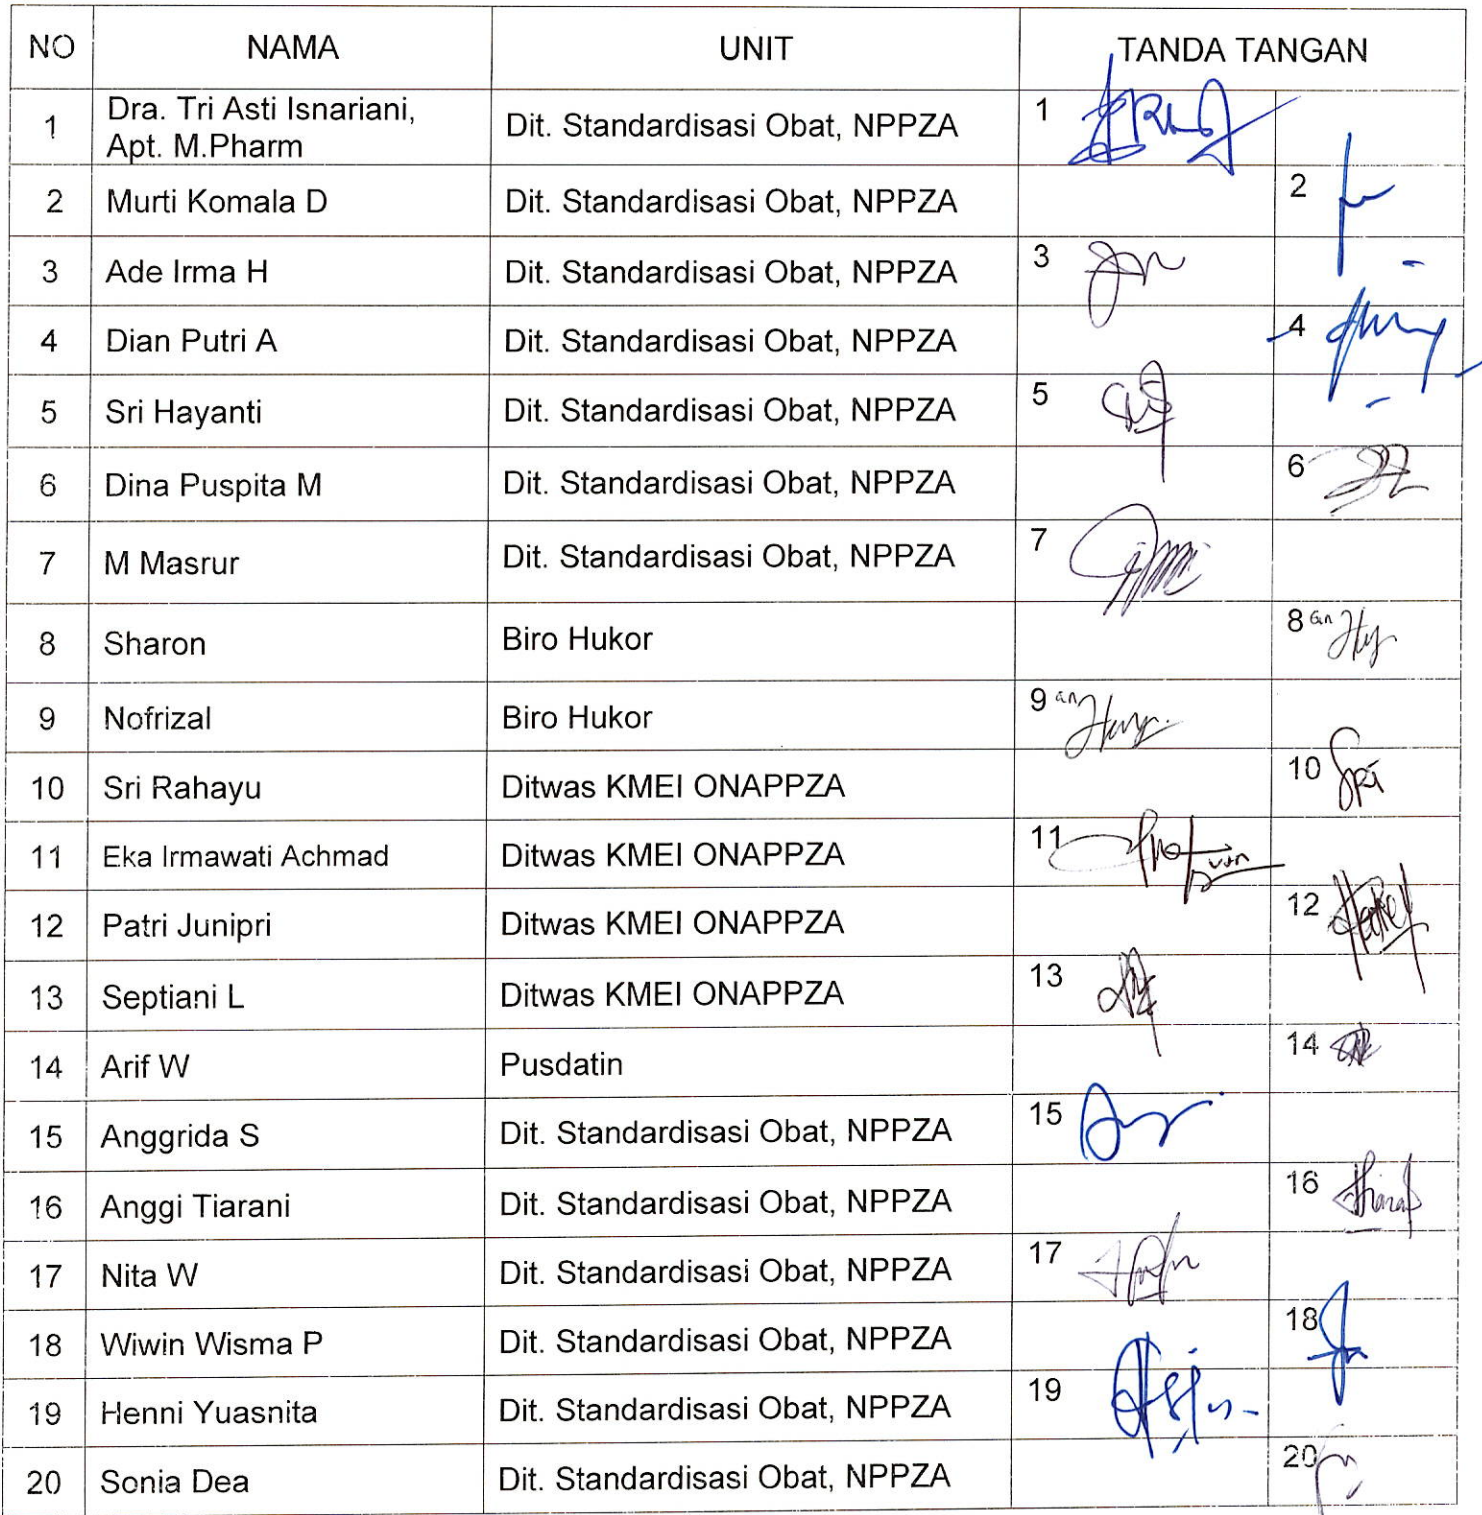 NO NAMA UNIT TANDA TANGAN
1 Dra. Tri Asti Isnariani, Apt. M.Pharm Dit. Standardisasi Obat, NPPZA 1
2 Murti Komala D Dit. Standardisasi Obat, NPPZA 2
3 Ade Irma H Dit. Standardisasi Obat, NPPZA 3
4 Dian Putri A Dit. Standardisasi Obat, NPPZA 4
5 Sri Hayanti Dit. Standardisasi Obat, NPPZA 5
6 Dina Puspita M Dit. Standardisasi Obat, NPPZA 6
7 M Masrur Dit. Standardisasi Obat, NPPZA 7
8 Sharon Biro Hukor 8 an
9 Nofrizal Biro Hukor 9 an
10 Sri Rahayu Ditwas KMEI ONAPPZA 10
11 Eka Irmawati Achmad Ditwas KMEI ONAPPZA 11
12 Patri Junipri Ditwas KMEI ONAPPZA 12
13 Septiani L Ditwas KMEI ONAPPZA 13
14 Arif W Pusdatin 14
15 Anggrida S Dit. Standardisasi Obat, NPPZA 15
16 Anggi Tiarani Dit. Standardisasi Obat, NPPZA 16
17 Nita W Dit. Standardisasi Obat, NPPZA 17
18 Wiwin Wisma P Dit. Standardisasi Obat, NPPZA 18
19 Henni Yuasnita Dit. Standardisasi Obat, NPPZA 19
20 Sonia Dea Dit. Standardisasi Obat, NPPZA 20